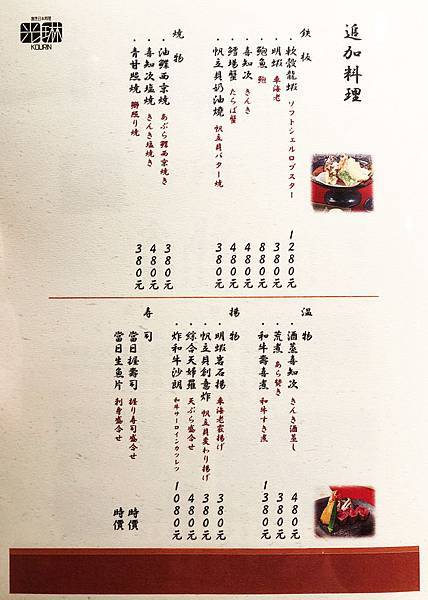 追加料理
鉄板
・軟殼龍蝦 ソフトシェルロブスター 1280元
・明蝦 車海老 380元
・鮑魚 鮑 880元
・喜知次 きんき 480元
・鱈場蟹 たらば蟹 480元
・帆立貝奶油燒 帆立貝バター焼 380元
燒物
・油鰈西京燒 あぶら鰈西京焼き 380元
・喜知次塩燒 きんき塩焼き 480元
・青甘照燒 鰤照り焼 380元
光琳
KOURIN
溫物
・酒蒸喜知次 きんき酒蒸し 480元
・荒煮 あら焚き 380元
・和牛壽喜煮 和牛すき煮 1380元
揚物
・明蝦岩石揚 車海老霰揚げ 380元
・帆立貝創意炸 帆立貝変わり揚げ 380元
・綜合天婦羅 天ぷら盛合せ 480元
・炸和牛沙朗 和牛サーロインカツレツ 1080元
寿司
當日握壽司 握り寿司盛合せ 時價
當日生魚片 刺身盛合せ 時價